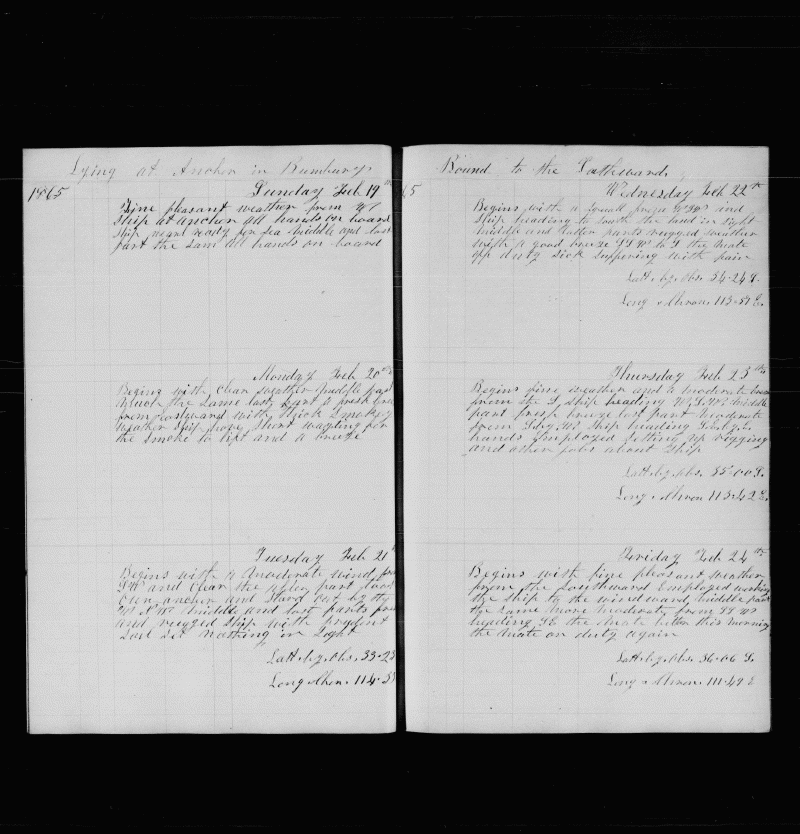 Lying at Anchor in Bumbury
1865 Sunday Feb 19th
Fine pleasant weather from
Ship at anchor all hands on board
Ship near ready for Sea middle and last
part the Sam all hands on board
Monday Feb 20th
Begins with Clear weather middle part
the Same last part a fresh
from Eastward with thick Smokey
weather Ship hove Short wayting for
the Smoke to lift and a breeze
Tuesday Feb 21
Begins with a moderate wind
SW and Clear the part took
anchor and Stand out by the
W N W middle and last parts
and rugged Ship with prudent
Sail Set nothing in Sight
Latt by Obs. 33-23
Long Chron. 114-5
Bound to the Suthward
65 Wednesday Feb 22th
Begins with a Small and
Ship heading to South the land in sight
middle and latter parts rugged weather
with a good breeze SSW to S the mate
off duty Sick Suffering with pain
Latt by Obs. 34-24 S.
Long Chron. 113-51 E.
Thursday Feb 23th
Begins fine weather and a moderate
from the S, Ship heading W.S.W. middle
part fresh breeze last part moderate
from S by W Ship heading
hands Employed Setting up rigging
and other Jobs about Ship
Latt by Obs. 35-00 S.
Long Chron 113-42 E.
Friday Feb 24th
Begins with fine pleasant weather
from the Southward Employed working
the Ship to the windward, middle part
the Same more moderate from SSW
heading SE the mate better this morning
the mate on duty again
Latt by Obs. 36-06 S.
Long Chron. 111-49 E